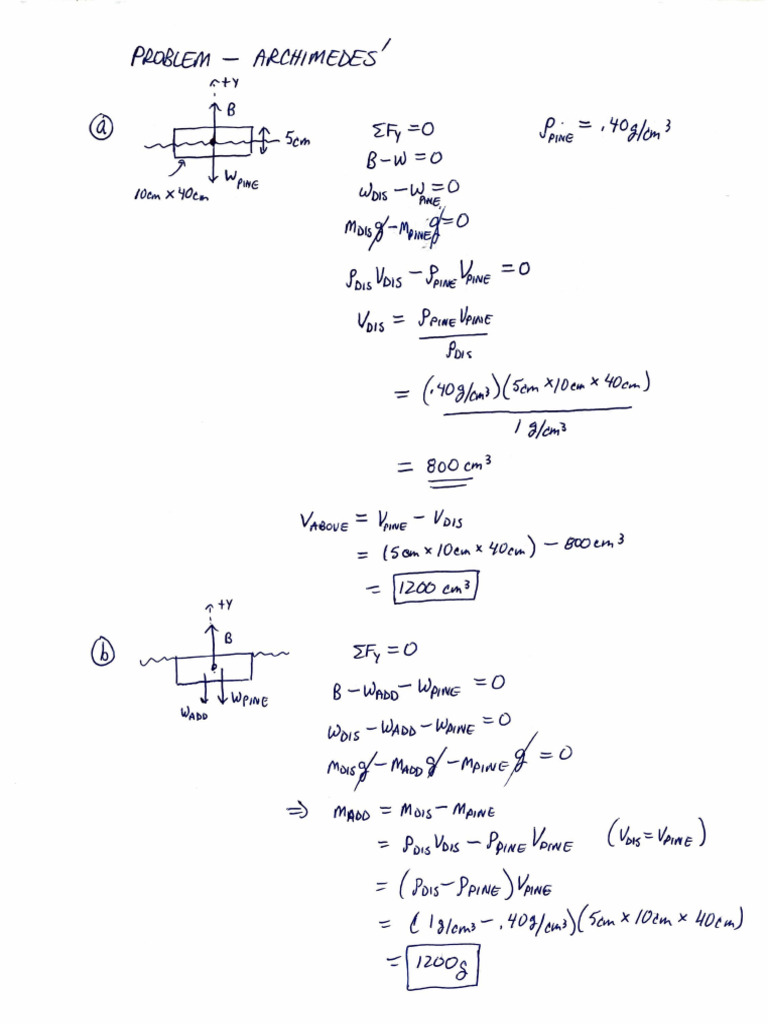 PROBLEM — ARCHIMEDES'
(a)
+Y
B
5cm
W_PINE
10cm x 40cm
ΣF_y = 0
ρ_PINE = .40g/cm³
B – W = 0
W_DIS – W_PINE = 0
m_DIS g – m_PINE g = 0
ρ_DIS V_DIS – ρ_PINE V_PINE = 0
V_DIS = ρ_PINE V_PINE / ρ_DIS
= (.40g/cm³)(5cm x 10cm x 40cm) / 1 g/cm³
= 800 cm³
V_ABOVE = V_PINE – V_DIS
= (5cm x 10cm x 40cm) – 800cm³
= 1200 cm³
(b)
+Y
B
W_PINE
W_ADD
ΣF_y = 0
B – W_ADD – W_PINE = 0
W_DIS – W_ADD – W_PINE = 0
m_DIS g – m_ADD g – m_PINE g = 0
⇒ m_ADD = m_DIS – m_PINE
= ρ_DIS V_DIS – ρ_PINE V_PINE (V_DIS = V_PINE)
= (ρ_DIS – ρ_PINE) V_PINE
= (1g/cm³ – .40g/cm³)(5cm x 10cm x 40cm)
= 1200g